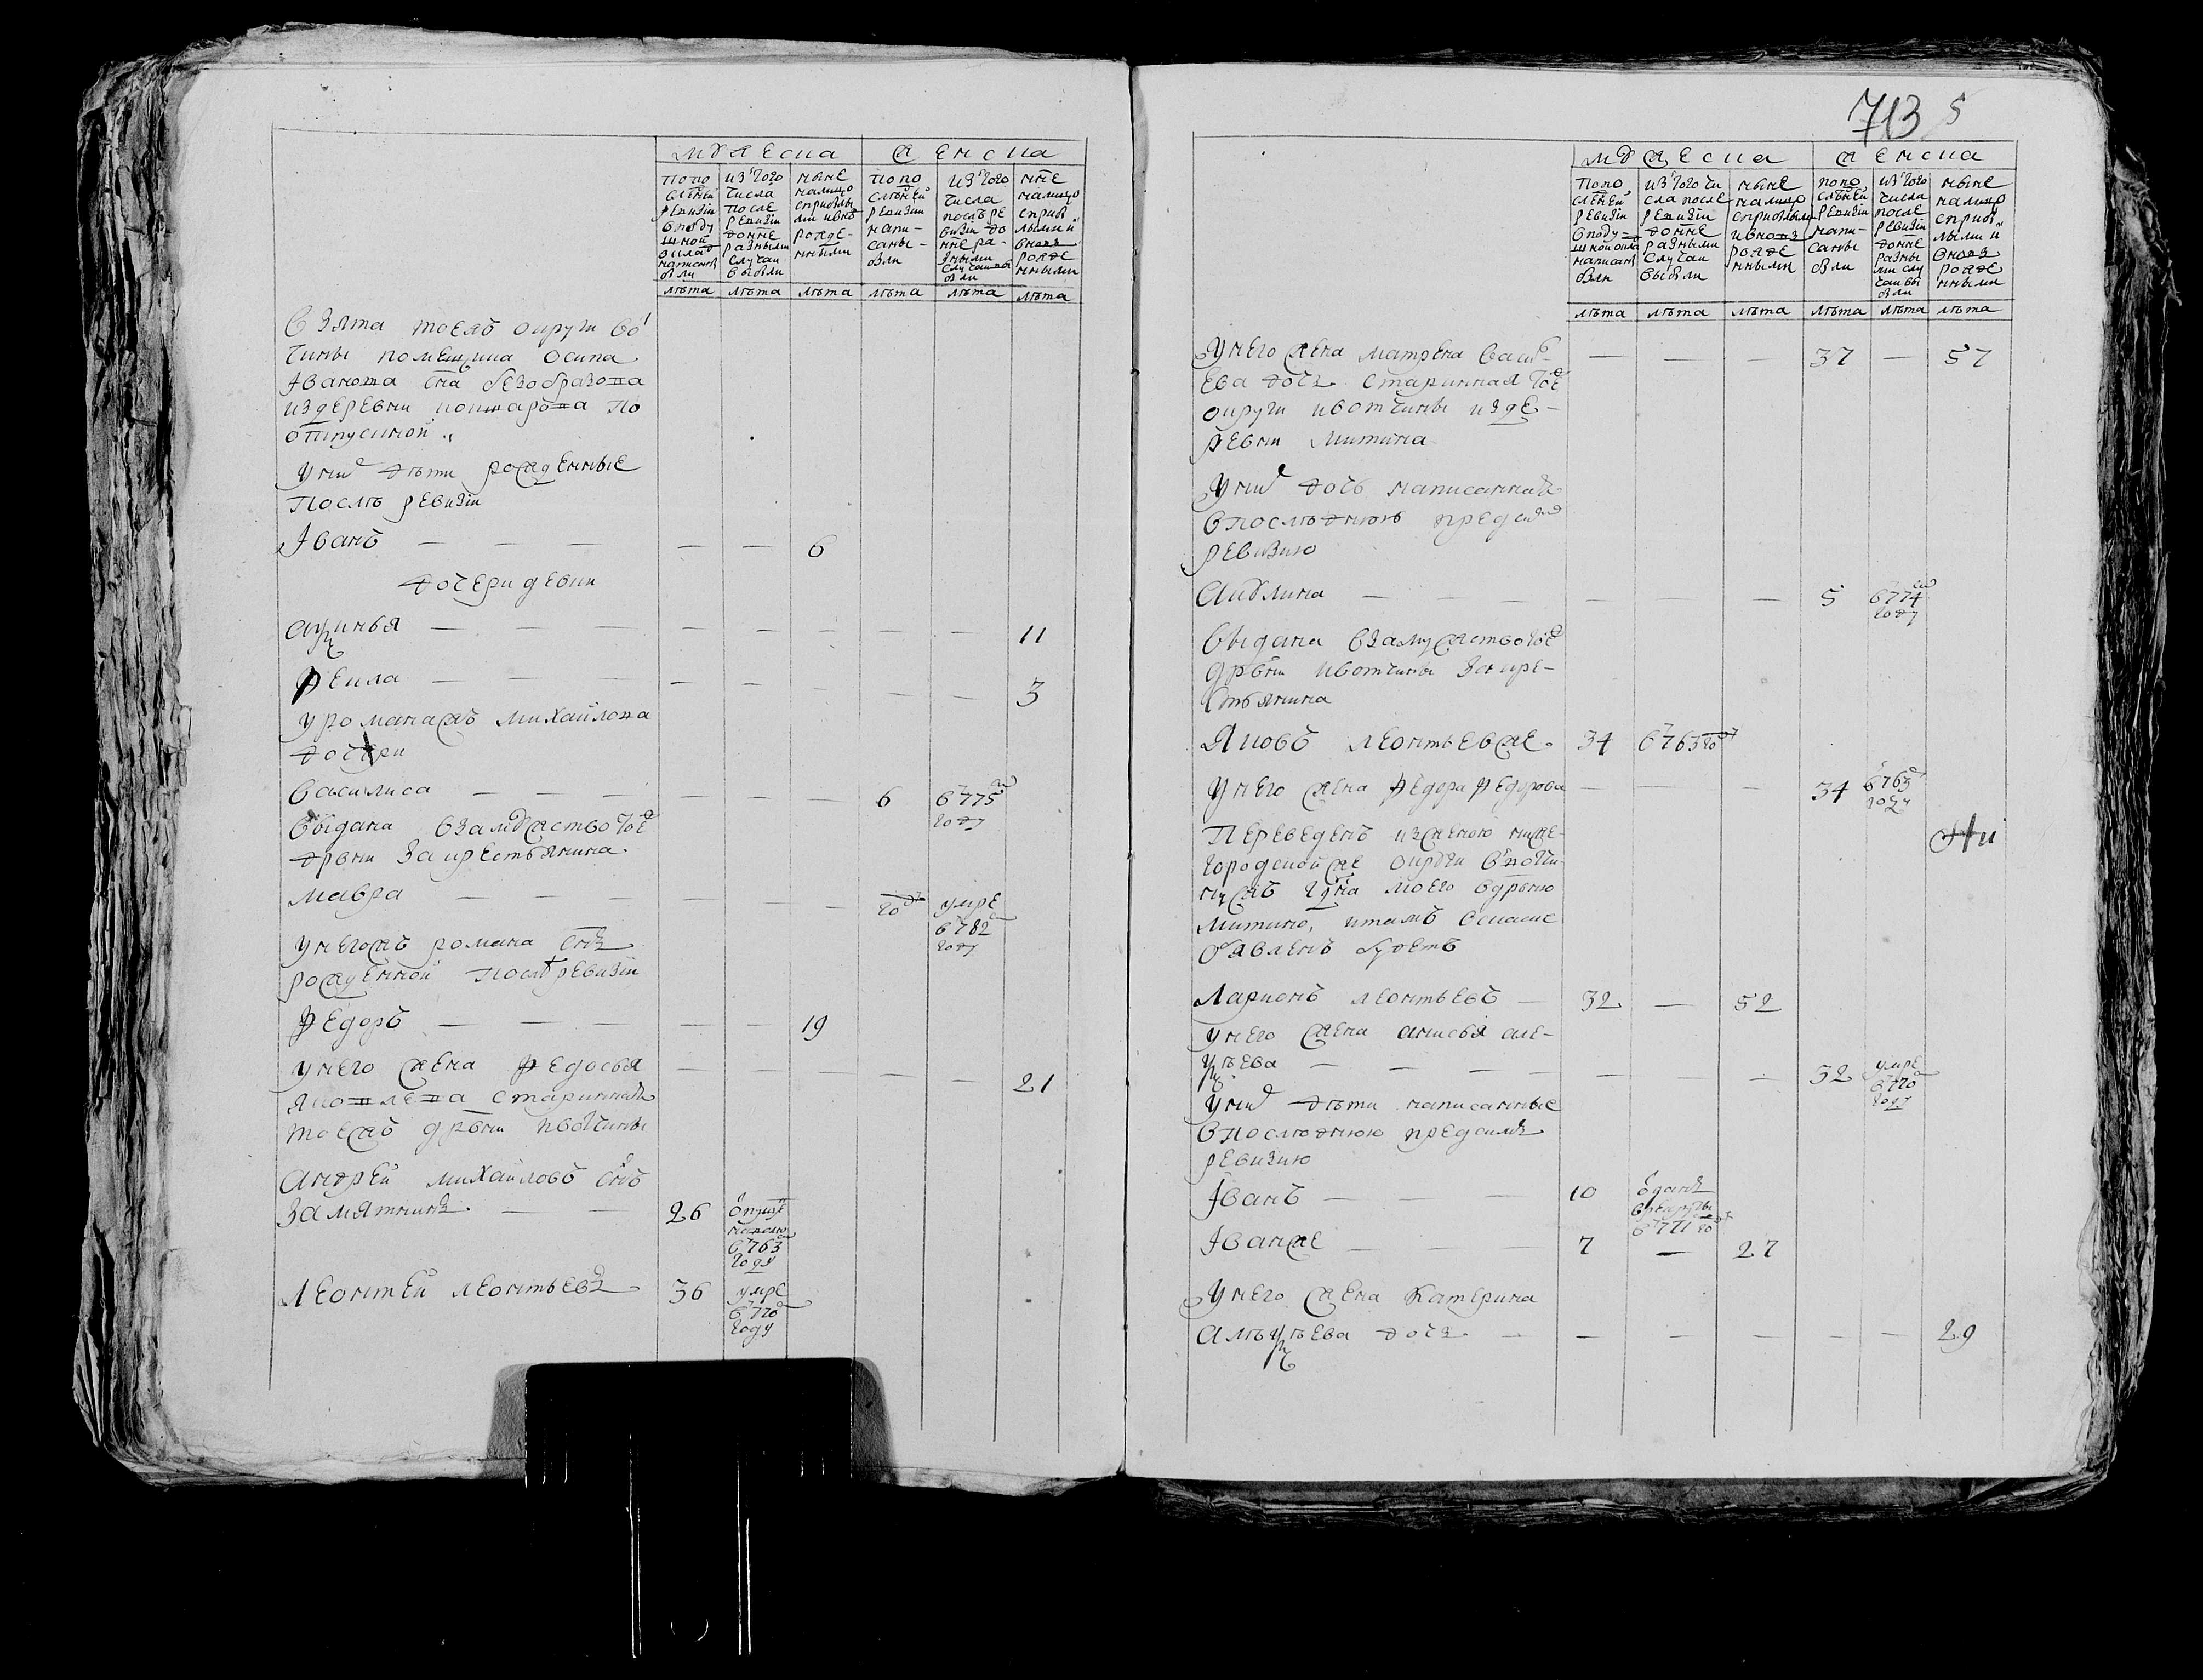 мужеска женска
по по
слѣдней
ревизiи
в поду
шной
оклад
написаны
были
изъ того
числа
после
ревизiи
до нне
разными
случаи
выбыли
ныне
на лицо
с прибылы
ми и вновь
рожде-
нными
по по
слѣдней
ревизiи
напи-
саны -
были
изъ того
числа
послѣ ре
визiи до
нне ра-
зными
случаи вы
были
нне
на лицо
с приб
лыми и
вновь
рожде
нными
лѣта лѣта лѣта лѣта лѣта лѣта
взята тоежъ округи во
тчины помещика осипа
Iванова сна безобразова
из деревни кошарова по
отпускной
у них дѣти рожденные
послѣ ревизiи
Iванъ — — — — — 6
дочери девки
аксинья — — — — — — — — 11
Фекла — — — — — — — — 3
у романажъ михайлова
дочери
василиса — — — — — — 6 в 775 м
году
выдана в замужство тое
дрвни за крестьянина
мавра — — — — — — году умре
в 782
году
у негожъ романа снъ
рожденной послѣ ревизiи
Федоръ — — — — — 19
у него жена Федосья — — — — — 21
яковлева старинная
тоежъ дрвни и вотчины
андрей михайловъ снъ
замятнинъ — — 26
в 763
году
леонтей леонтьевъ 36 умре
в 770
году
713 5
мужеска женска
по по
слѣдней
ревизiи
в поду-
шной оклад
написаны
были
изъ того чи
сла после
ревизiи
до нне
разными
случаи
выбыли
ныне
на лицо
с прибылы
и вновь
рожде
нными
по по
слѣдней
ревизiи
напи-
саны
были
изъ того
числа
после
ревизiи
до нне
разны
ми слу
чаи вы
были
ныне
на лицо
с приб
лыми и
вновь
рожде
нными
лѣта лѣта лѣта лѣта лѣта лѣта
у него жена матрена васил — — — 37 — 57
ева дочь старинная тое
округи и вотчины из де-
ревни митина
у них дочь написанная
в последнюю пред сим
ревизию
акулина — — — — — — 5 в 774 м
году
выдана в замужство тое
дрвни и вотчины за кре-
стьянина
яковъ леонтьевже 34 в 763 году
у него жена Федора Федорова — — — 34 в 763
году
переведенъ из женою ниже-
городскойже округи в вотчи-
ну жъ гдна моего в дрвню
митино, и тамъ в сказке
объявленъ будетъ
ларионъ леонтьевъ — 32 — 52
у него жена анисья але-
ксѣева — — — — — — — 32 умре
в 770
году
у них дѣти написанные
в последнюю пред сим
ревизию
Iванъ — — — 10 отданъ
в рекруты
в 771 году
Iванже — — — 7 — 27
у него жена катерина
алѣксѣева дочь — — — — — — 29